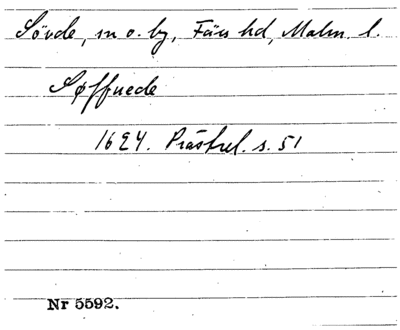 Sövde, sn o. by, Färs hd, Malm. l.
Søffuede
1624. Prästrel. s. 51
Nr 5592.